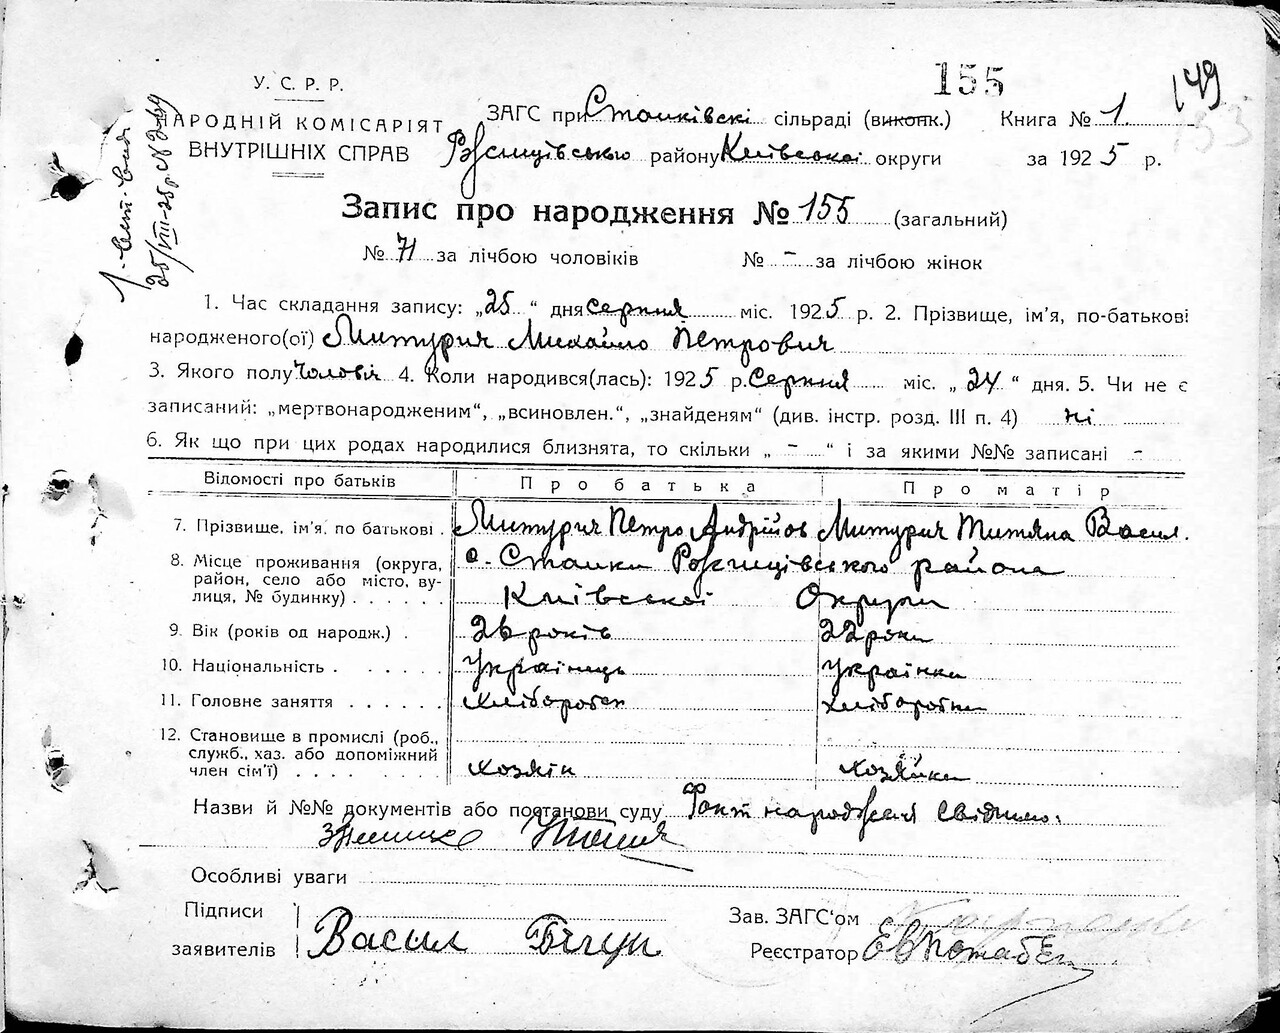 155
149
153
У. С. Р. Р.
НАРОДНІЙ КОМІСАРІЯТ
ВНУТРІШНІХ СПРАВ
ЗАГС при Стайківскі сільраді (виконк.) Книга № 1
Ржищівського району Київської округи за 1925 р.
25/VIII-25р. №
Запис про народження № 155 (загальний)
№ 71 за лічбою чоловіків № - за лічбою жінок
1. Час складання запису: „25“ дня серпня міс. 1925 р. 2. Прізвище, ім’я, по-батькові
народженого(ої) Митурич Михайло Петрович
3. Якого полу чоловіч 4. Коли народився(лась): 1925 р. Серпня міс. „24“ дня. 5. Чи не є
записаний: „мертвонародженим“, „всиновлен.“, „знайденям“ (див. інстр. розд. III п. 4) ні
6. Як що при цих родах народилися близнята, то скільки „-“ і за якими №№ записані -
Відомості про батьків Про батька Про матір
7. Прізвище, ім’я, по батькові . Митурич Петро Андрійов Митурич Титяна Васил.
8. Місце проживання (округа, с. Стайки Ржищівського района
район, село або місто, ву-
лиця, № будинку) . . . . . . Київської Округи
9. Вік (років од народж.) . 26 років 22 роки
10. Національність . . . . . Українець Українка
11. Головне заняття . . . . . . хлібороб хліборобка
12. Становище в промислі (роб.,
служб., хаз. або допоміжний
член сім’ї) . . . . . хозяїн хозяйка
Назви й №№ документів або постанови суду Факт народження свідчило:
Особливі уваги
Підписи Зав. ЗАГС‘ом
заявителів Васил Бігун Реєстратор